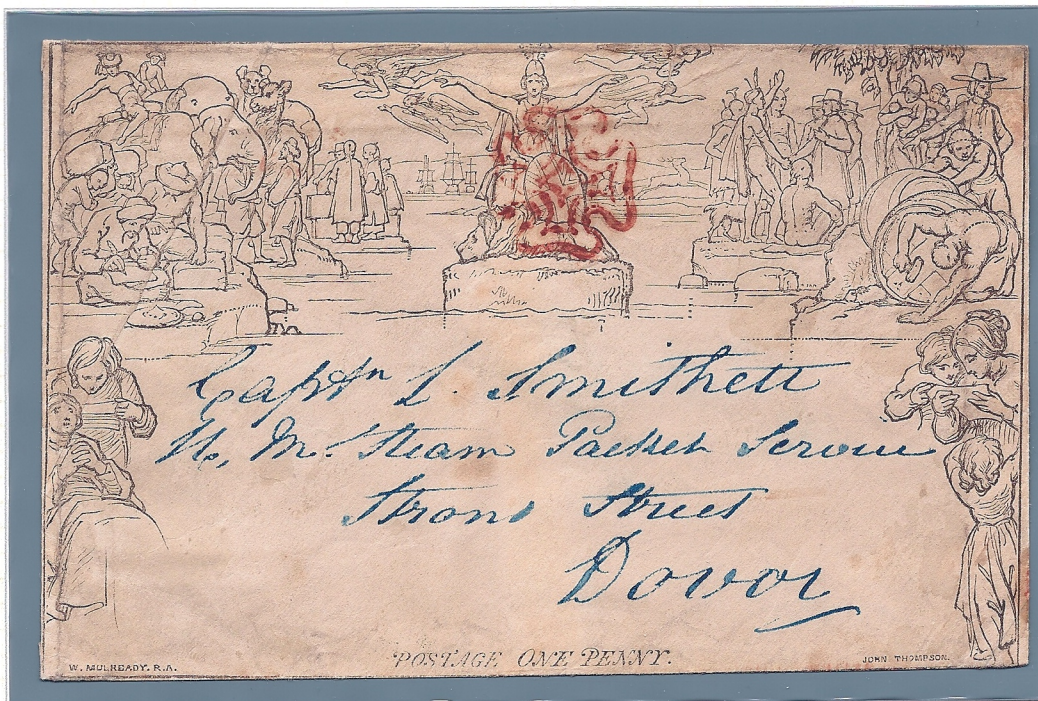 Captn L. Smithett
H. M. Steam Packet Service
Strond Street
Dovor
W. MULREADY. R.A.
POSTAGE ONE PENNY.
JOHN THOMPSON.